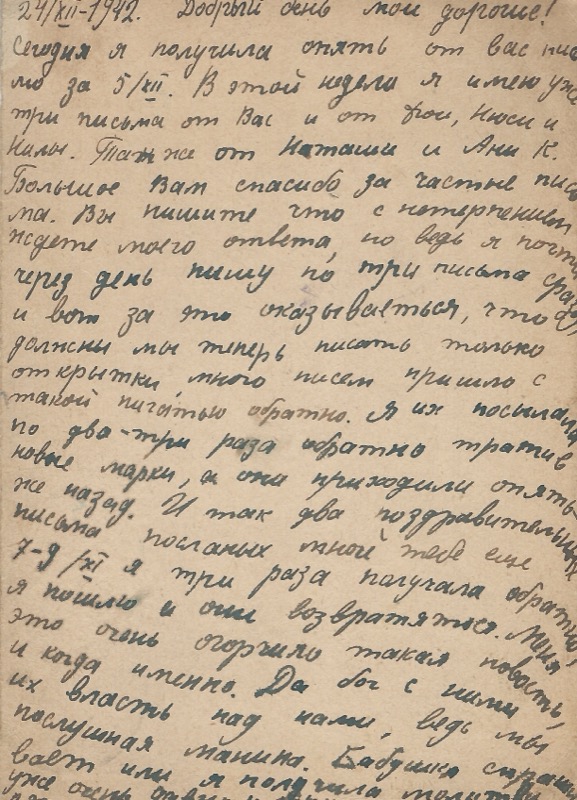 24/XII-1942. Добрый день мои дорогие!
Сегодня я получила опять от вас пись
мо за 5/XII. В этой недели я имею уже
три письма от Вас и от Фои, Нюси и
Нилы. Так же от Наташи и Ани К.
Большое Вам спасибо за частые пись
ма. Вы пишите что с нетерпением
ждете моего ответа, но ведь я почти
через день пишу по три письма сразу,
и вот за это оказываеться, что
должны мы теперь писать только
открытки, много писем пришло с
такой пичатью обратно. Я их посылала
по два-три раза обратно тратив
новые марки, а они приходили опять
же назад. И так два поздравительных
письма посланых мной тебе еще
7-9/XI я три раза получала обратно,
я пошлю и они возвратятся. Меня
это очень огорчило такая новость,
и когда именно. Да бог с ними,
их власть над нами, ведь мы
послушная манина. Бабушка спраши
вает или я получила молитвы
уже очень